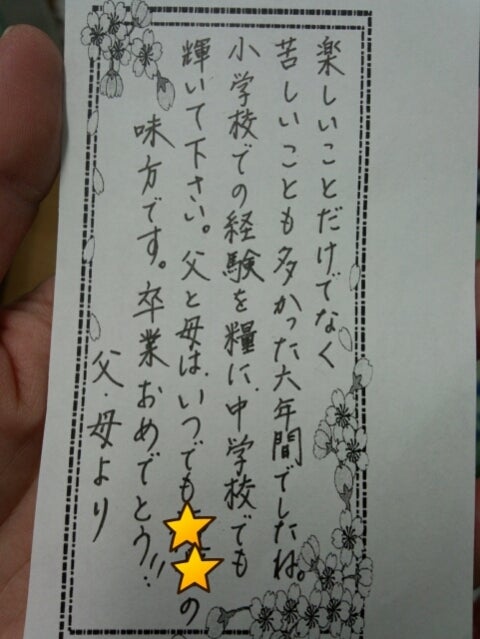 楽しいことだけでなく
苦しいことも多かった六年間でしたね。
小学校での経験を糧に、中学校でも
輝いて下さい。父と母は、いつでも
の
味方です。卒業おめでとう!!
父・母より